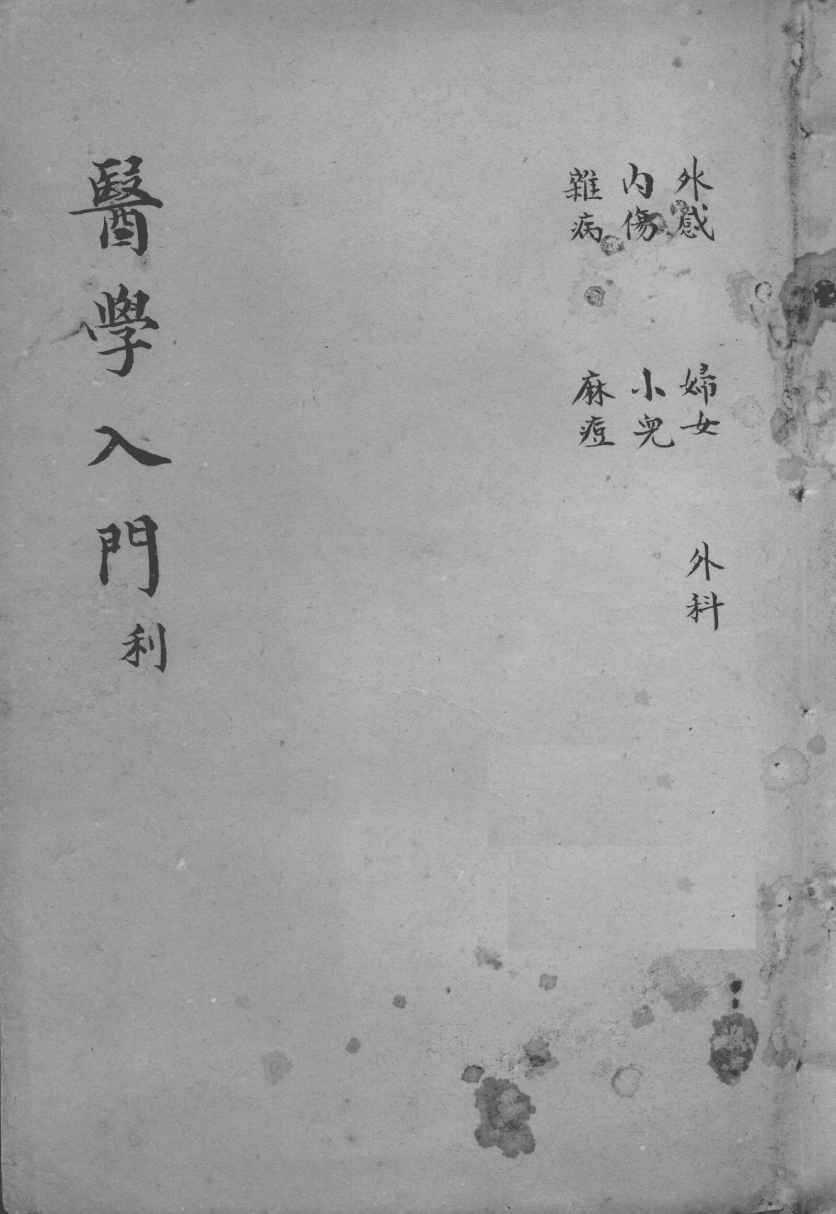 外感
內傷
雜病
婦女
小兒
麻痘
外科
醫學入門 利